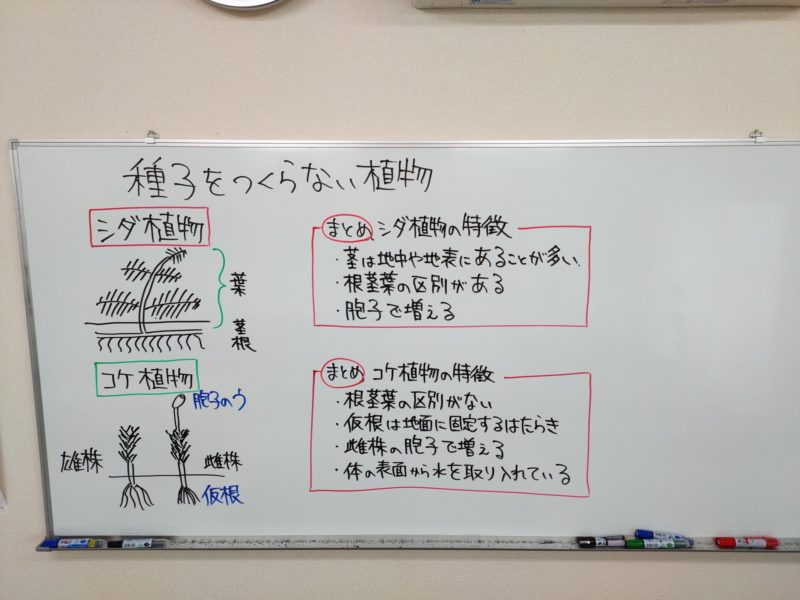 種子をつくらない植物
シダ植物
葉
茎
根
まとめ シダ植物の特徴
・茎は地中や地表にあることが多い.
・根茎葉の区別がある
・胞子で増える
コケ植物
胞子のう
雄株
雌株
仮根
まとめ コケ植物の特徴
・根茎葉の区別がない
・仮根は地面に固定するはたらき
・雌株の胞子で増える
・体の表面から水を取り入れている